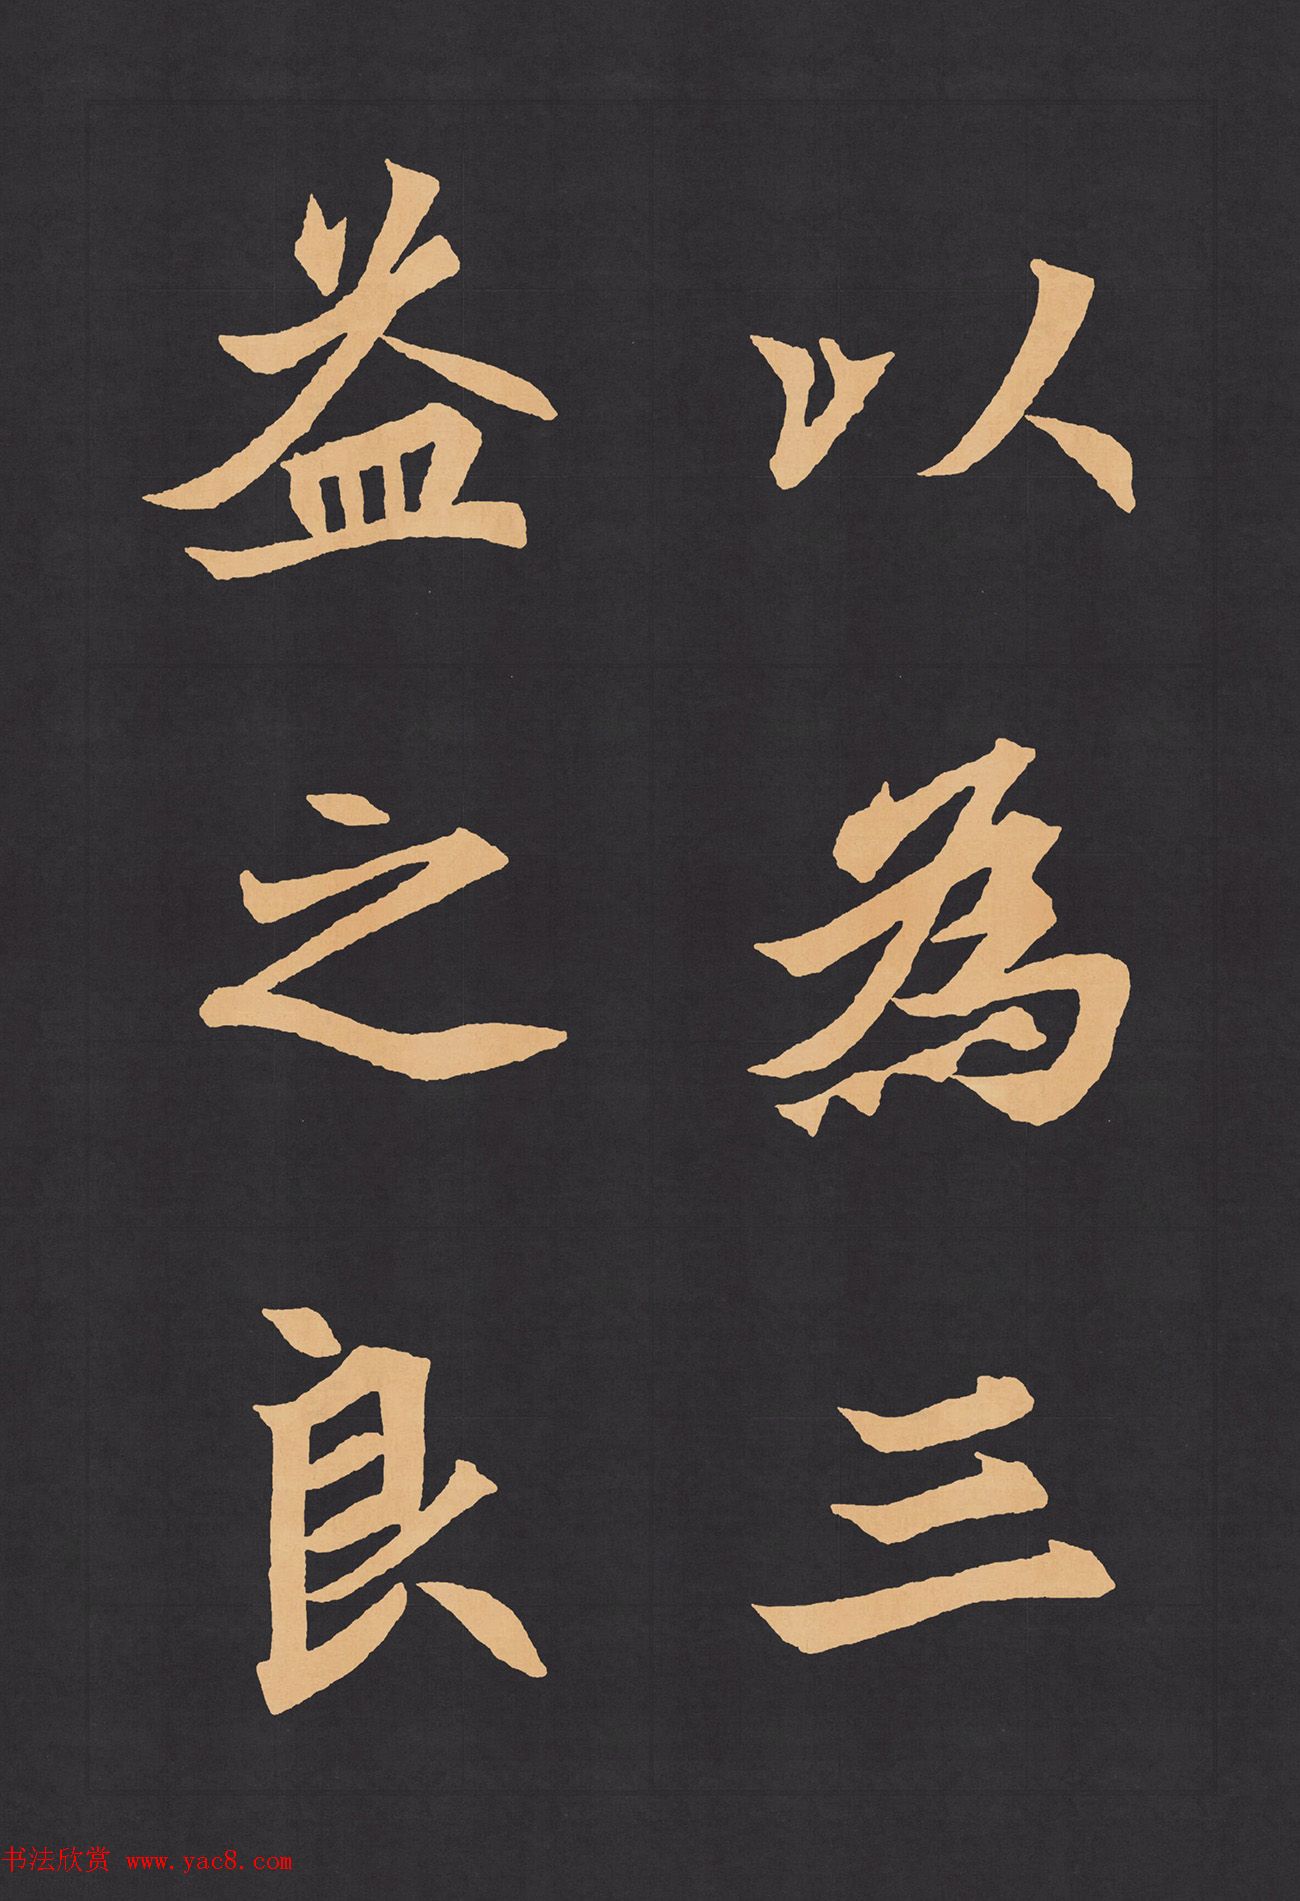 以為三
益之良
书法欣赏 www.yac8.com